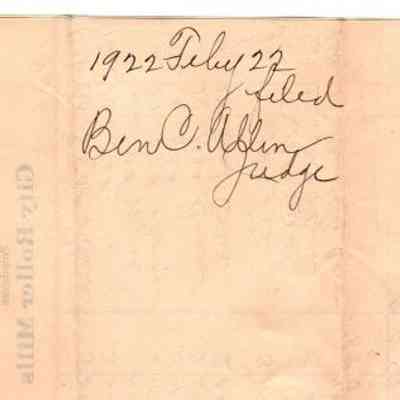 1922 Feby 22
filed
Ben C. Allen
Judge
City Roller Mills